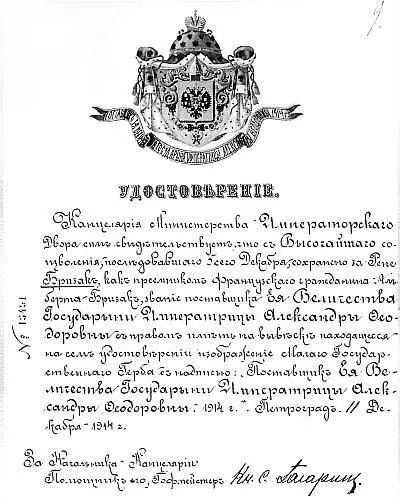 УДОСТОВѢРЕНІЕ.
Канцелярія Министерства Императорскаго
Двора симъ свидѣтельствуетъ, что съ Высочайшаго со-
изволенія, послѣдовавшаго 7сего Декабря, сохранено за Рене
Бризакъ, какъ преемникомъ французскаго гражданина Аль-
берта Бризакъ, званіе поставщика Ея Величества
Государыни Императрицы Александры Ѳео-
доровны съ правомъ имѣть на вывѣскѣ находящееся
на семъ удостовѣреніи изображеніе Малаго Государ-
ственнаго Герба съ надписью: „Поставщикъ Ея Ве-
личества Государыни Императрицы Алек-
сандры Ѳеодоровны" 1914 г. Петроградъ. 11 Де-
кабря 1914 г.
За Начальника Канцеляріи
Помощникъ его, Гофмейстеръ Кн. С. Гагаринъ